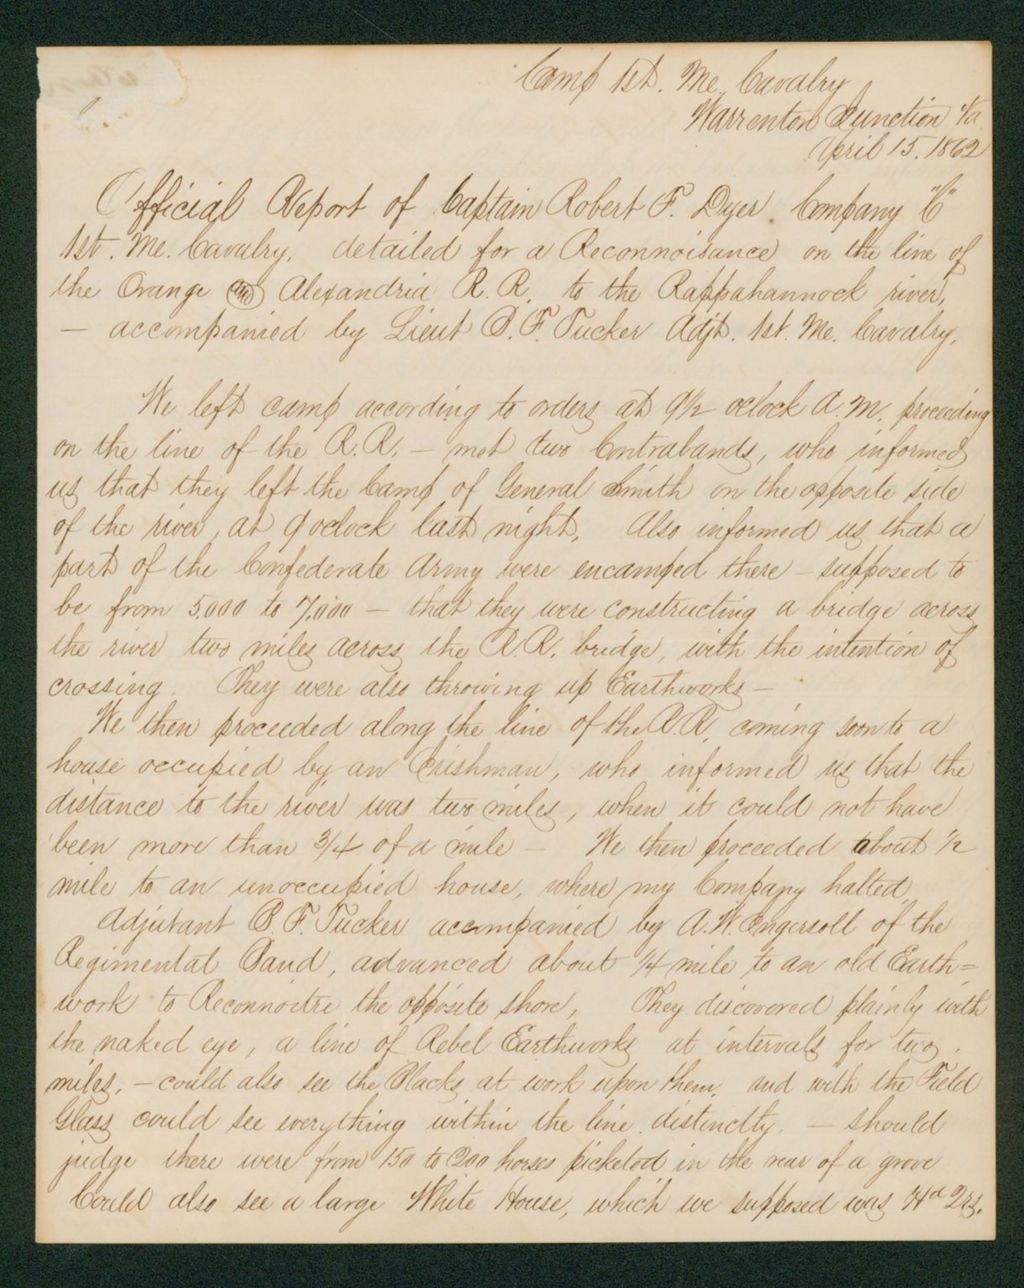 Camp 1st. Me. Cavalry
Warrenton Junction Va
April 15. 1862
Official Report of Captain Robert F. Dyer. Company "C"
1st. Me. Cavalry. detailed for a Reconnoisance on the line of
the Orange and Alexandria R. R. to the Rappahannock river,
— accompanied by Lieut B. F. Tucker Adjt. 1st. Me. Cavalry.
We left camp according to orders at 9½ oclock A. M. proceeding
on the line of the R. R. — met two Contrabands, who informed
us that they left the Camp of General Smith on the opposite side
of the river, at 9 oclock last night, Also informed us that a
part of the Confederate Army were encamped there — supposed to
be from 5.000 to 7.000 — that they were constructing a bridge across
the river two miles across the R. R. bridge, with the intention of
crossing. They were also throwing up Earthworks —
We then proceeded along the line of the R. R. coming soon to a
house occupied by an Irishman, who informed us that the
distance to the river was two miles, when it could not have
been more than 3/4 of a mile — We then proceeded about ½
mile to an unoccupied house, where my Company halted
Adjutant B. F. Tucker accompanied by A. W. Ingersoll of the
Regimental Band, advanced about ¼ mile to an old Earth=
work to Reconnoitre the opposite shore, They discovered plainly with
the naked eye, a line of Rebel Earthworks at intervals for two
miles. — could also see the Blacks at work upon them. and with the Field
Glass could see everything within the line distinctly. — should
judge there were from 150 to 200 horses picketed in the rear of a grove
Could also see a large White House, which we supposed was Hd Qrs.